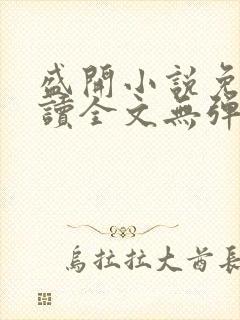 盛開小說免
讀全文無彈
烏拉拉大酋長